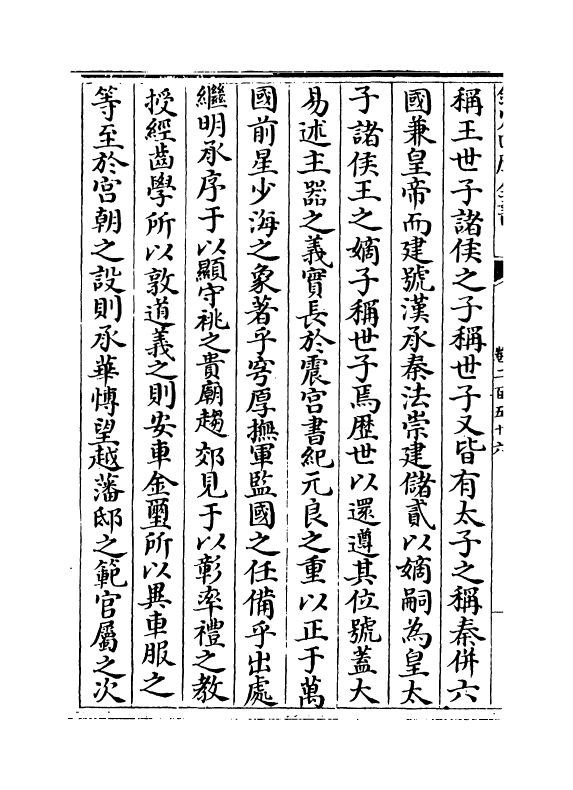 稱王世子諸侯之子稱世子又皆有太子之稱秦併六
國兼皇帝而建號漢承秦法崇建儲貳以嫡嗣為皇太
子諸侯王之嫡子稱世子焉歴世以還遵其位號蓋大
易述主器之義實長於震宮書紀元良之重以正于萬
國前星少海之象著乎穹厚撫軍監國之任備乎出處
繼明承序于以顯守祧之貴廟趨郊見于以彰率禮之教
授經齒學所以敦道義之則安車金璽所以異車服之
等至於宮朝之設則承華愽望越藩邸之範官屬之次
卷二百五十六